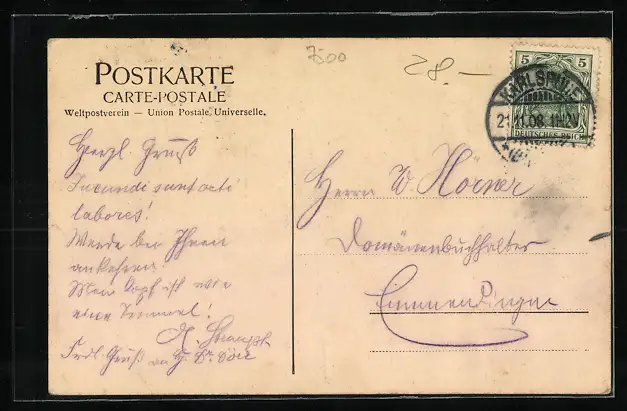 7500
28.-
POSTKARTE
CARTE-POSTALE
Weltpostverein — Union Postale Universelle.
5 5
KARLSRUHE
21.11.08. 11-12V
DEUTSCHES REICH
Herzl. Gruß
Jucundi sunt acti
labores!
Werde bei Ihnen
ankehren
Mein Kopf ist wie
eine Trommel!
Frdl. Gruß an H. Dr.
Herrn W. Hörner
Domänenbuchhalter
Emmendingen